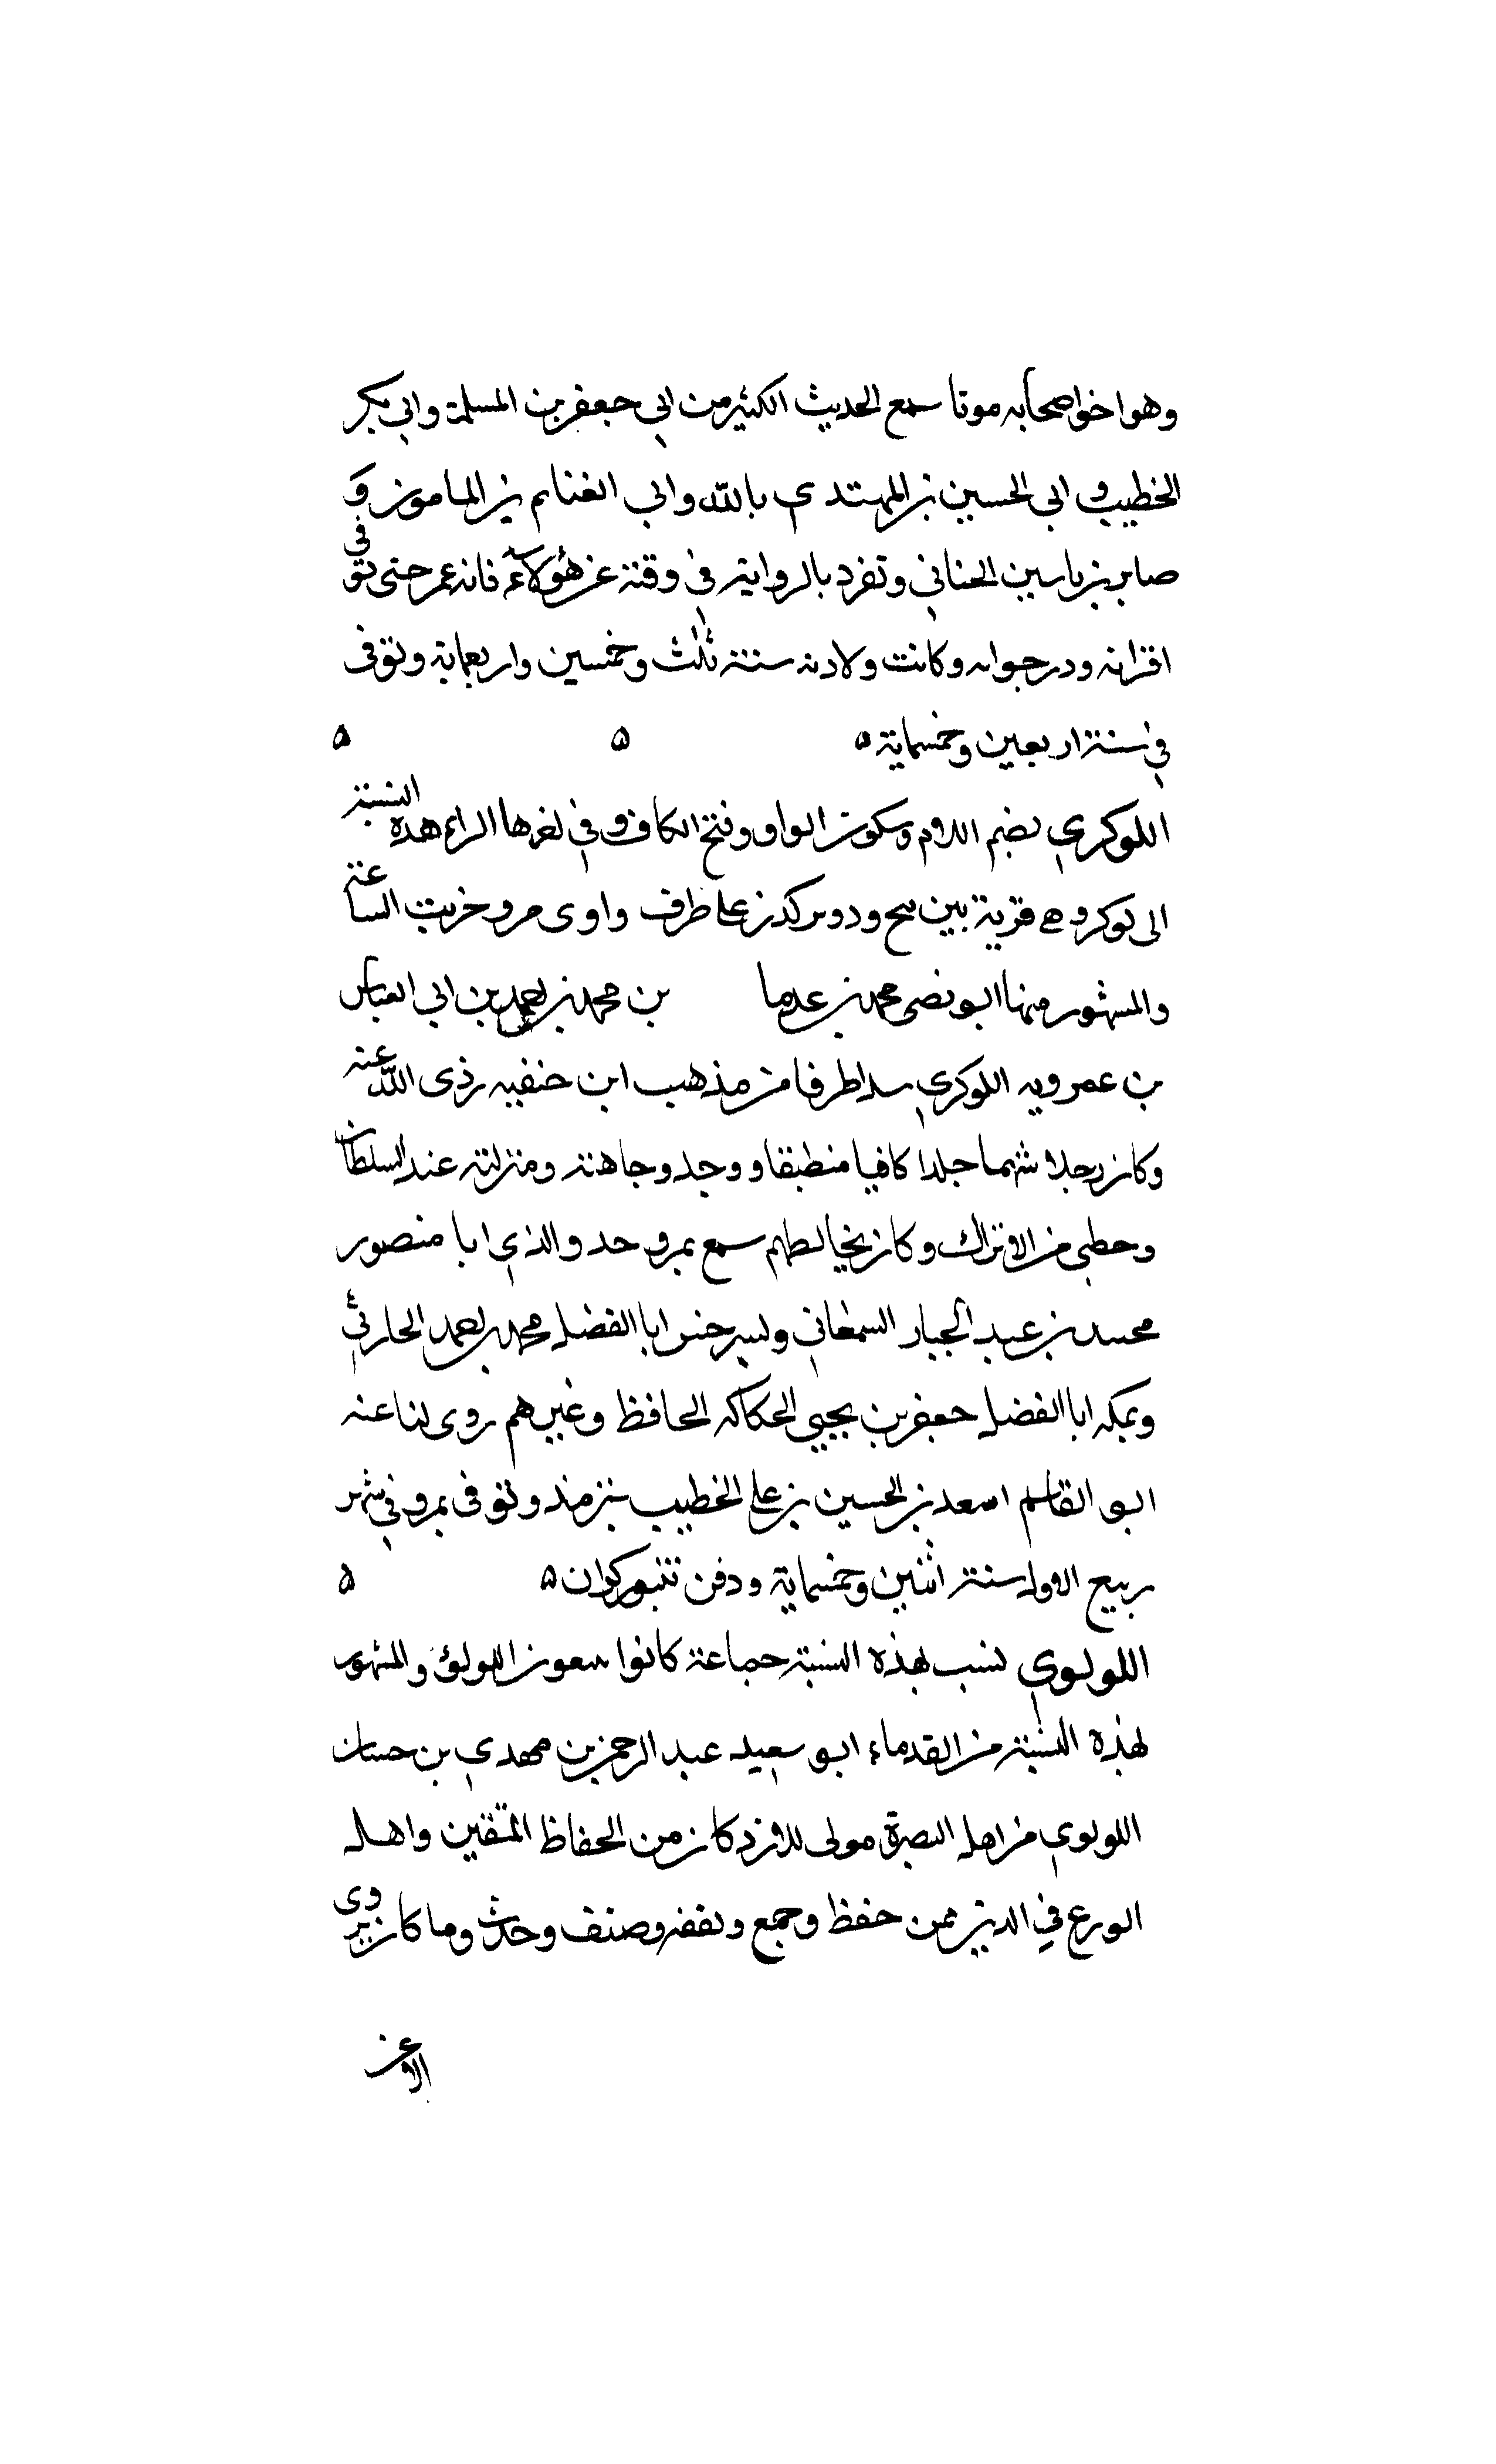 وهو اخو اصحابه موتا سمع الحديث الكثير من ابي جعفر بن المسلمة وابي بكر
الخطيب و ابي الحسين بن المهتدي بالله وابي الغنايم بن المامون و
صابر بن ياسين الحناني وتفرد بالرواية في وقته عن هؤلاء فانه عمر حتى توفى
اقرانه ودرجوا به وكانت ولادته سنة ثلث وخمسين واربعماية وتوفى
في سنة اربعين وخمسماية ٥ ٥ ٥
اللوكري بضم اللام وسكون الواو وفتح الكاف و في اخرها الراء هده النسبة
الى لوكر وهي قرية بين بنج ده وبركدز على طرف وادى مرو خربت الساعة
والمشهور منها ابو نصر محمد بن بن محمد بن احمد بن ابي العباس
بن عمرويه اللوكري طرفا من مذهب ابن حنفيه رذى الله عنه
وكان رجلا شهما جلدا كافيا منطبقا و وجد وجاهته ومنزلته عند السلطان
وحطى من الاتراك وكان يخالطهم سمع بمرو حد والذي ابا منصور
محمد بن عبد الجبار السمعاني وبسرخس ابا الفضل محمد بن احمد الحارثي
وبمكه ابا الفضل جعفر بن يحيي الحكاك الحافظ وغيرهم روى لنا عنه
ابو القاسم اسعد بن الحسين بن على الخطيب بترمذ وتوفى بمرو في شهر
ربيع الاول سنة اثنين وخمسماية ودفن تنوركران ٥ ٥
اللولوي نسب بهذه النسبة جماعة كانوا يبيعون اللولؤ والمشهور
بهذه النسبة من القدماء ابو سعيد عبد الرحمن بن مهدي بن حسان
اللولوي من اهل البصرة مولى للازد كان من الحفاظ المتقين واهل
الورع في الدين ممن حفظ وجمع وتفقه وصنف وحدث وما كان يروى
الا عن